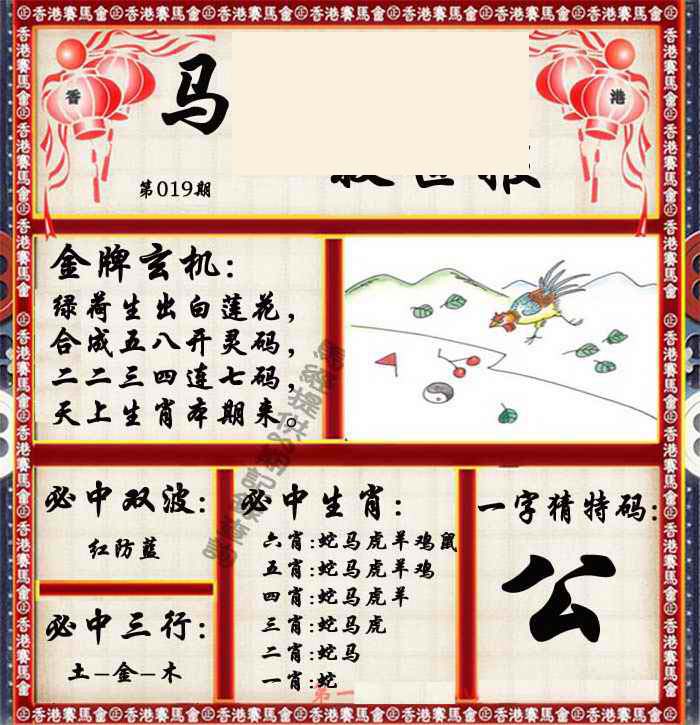 香港賽馬會
香 港
马
第019期
金牌玄机:
绿荷生出白莲花,
合成五八开灵码,
二二三四连七码,
天上生肖本期来。
必中双波:
红防蓝
必中三行:
土–金–木
必中生肖:
六肖:蛇马虎羊鸡鼠
五肖:蛇马虎羊鸡
四肖:蛇马虎羊
三肖:蛇马虎
二肖:蛇马
一肖:蛇
第一
一字猜特码:
公